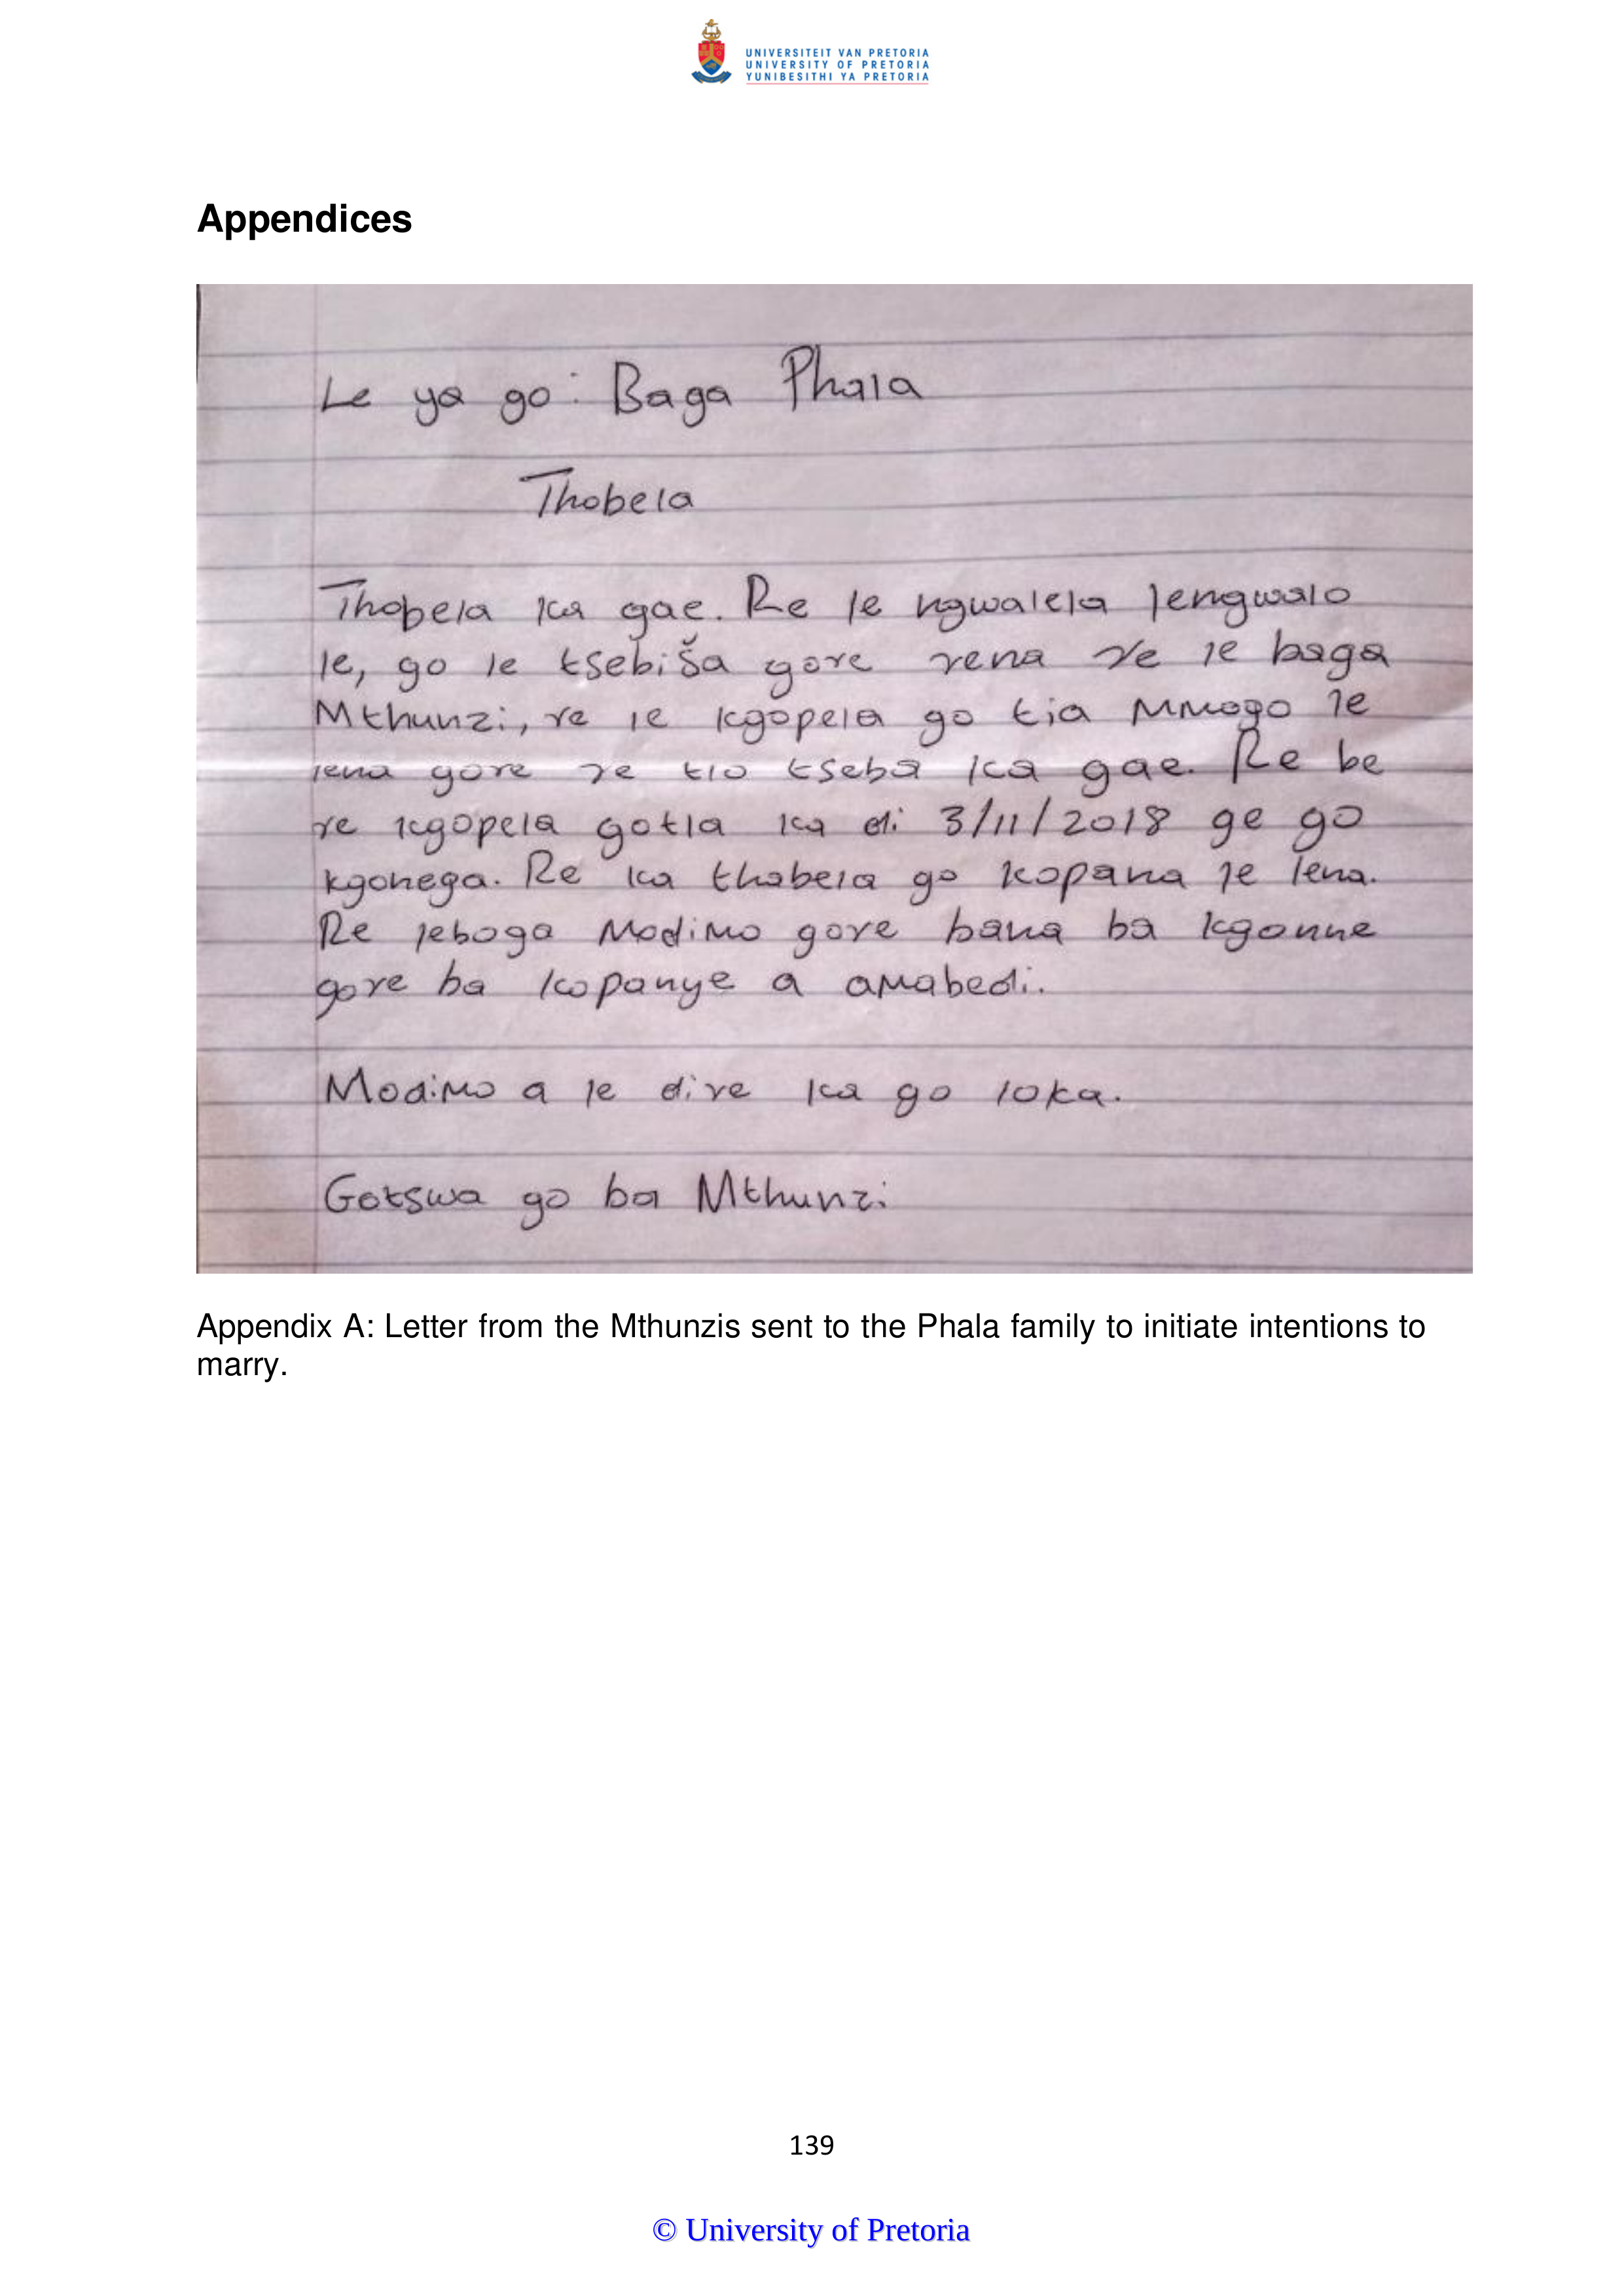 UNIVERSITEIT VAN PRETORIA
UNIVERSITY OF PRETORIA
YUNIBESITHI YA PRETORIA
Appendices
Le ya go: Baga Phala
Thobela
Thobela ka gae. Re le ngwalela lengwalo
le, go le tsebiša gore rena re le baga
Mthunzi, re le kgopela go tia Mmogo le
lena gore re tlo tseba ka gae. Re be
re kgopela gotla ka di 3/11/2018 ge go
kgonega. Re ka thabela go kopana le lena.
Re leboga Modimo gore bana ba kgonne
gore ba kopanye a amabedi.
Modimo a le dire ka go loka.
Gotswa go ba Mthunzi
Appendix A: Letter from the Mthunzis sent to the Phala family to initiate intentions to
marry.
139
© University of Pretoria